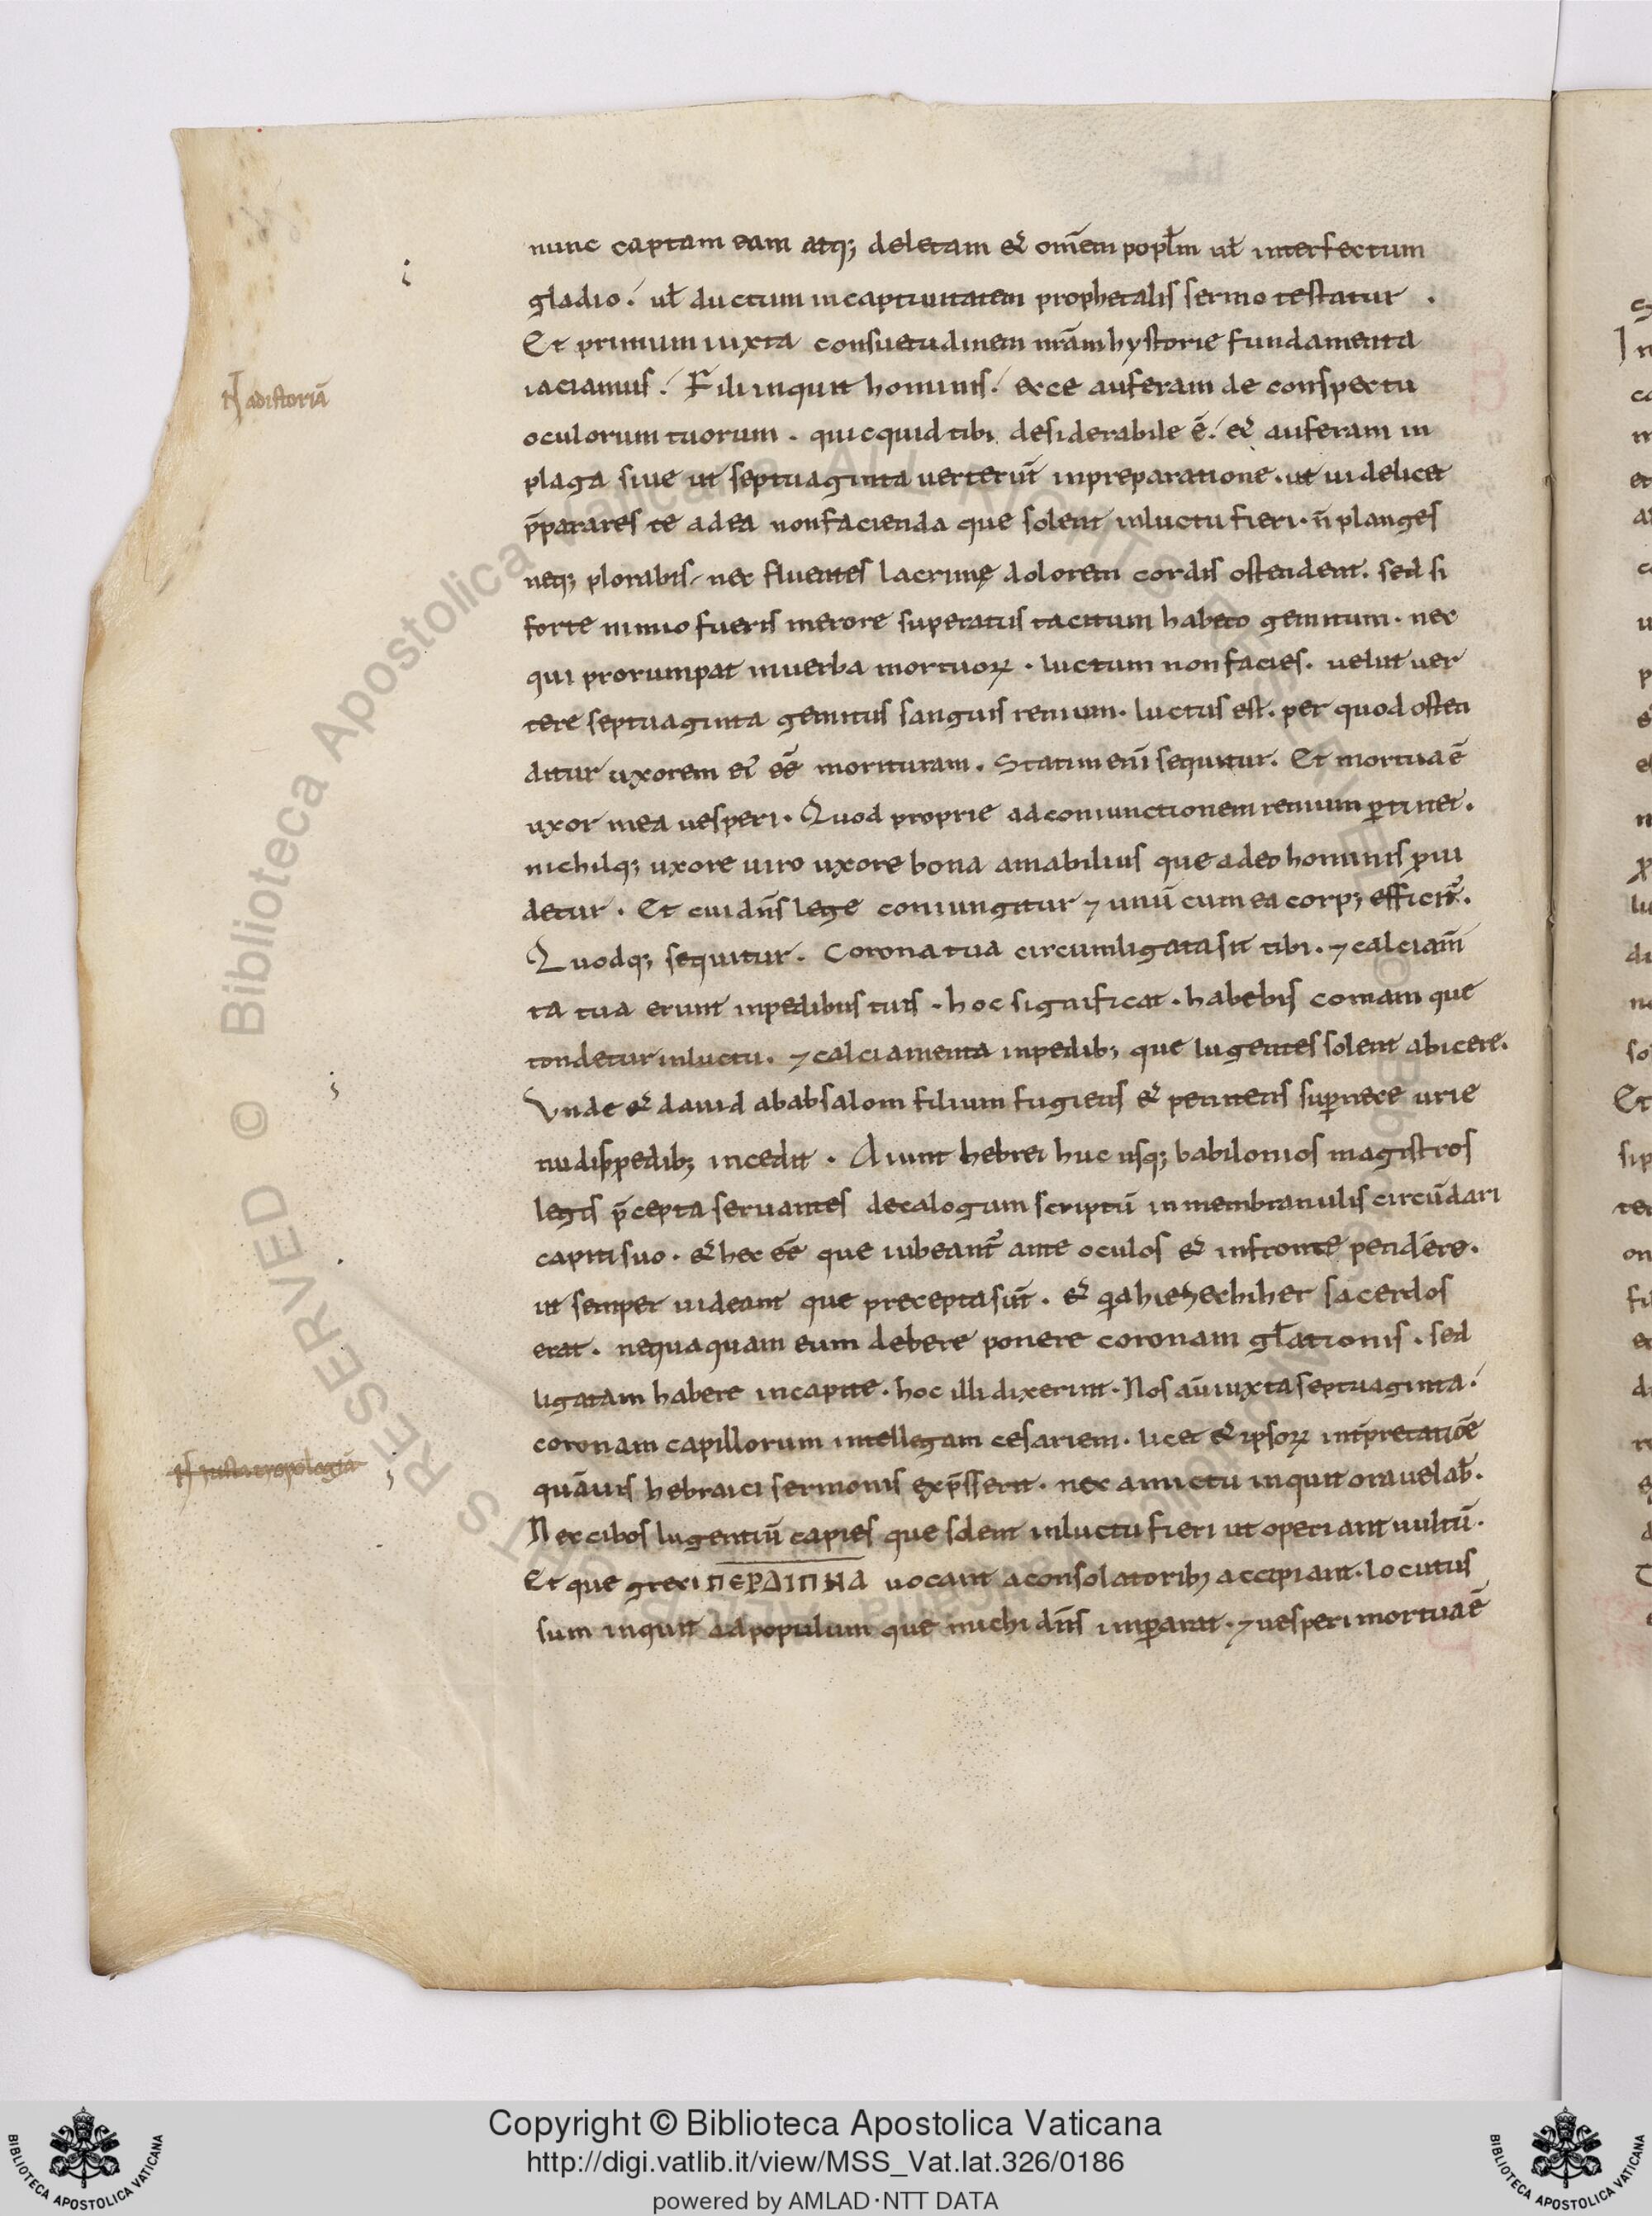 nunc captam eam atq; deletam & om̄em popl̄m ul̄ interfectum
gladio. ul̄ ductum incaptiuitatem prophetalis sermo testatur .
Et primum iuxta consuetudinem nr̄am hystorie fundamenta
iaciamus. Fili inquit hominis. ecce auferam de conspectu
N adistoriā
oculorum tuorum . quicquid tibi desiderabile ē. & auferam in
plaga siue ut septuaginta uerterūt inpreparatione . ut uidelicet
p̄parares te adea nonfacienda que solent inluctu fieri . n̄ planges
neq; plorabis. nec fluentes lacrimę dolorem cordis ostendent. sed si
forte nimio fueris merore superatus tacitum habeto gemitum . nec
qui prorumpat inuerba mortuoꝝ . luctum non facies. uelut uer
tere septuaginta gemitus sanguis renium. luctus est. per quod osten
ditur uxorem ei' eē morituram. Statim eni̅ sequitur. Et mortua ē
uxor mea uesperi. Quod proprie ad coniunctionem renium ꝑtinet.
nichilq; uxore uiro uxore bona amabilius que adeo hominis ꝓui
detur . Et cui dn̄s lege coniungitur ⁊ unū cum ea corp; efficit᷑.
Quodq; sequitur. Corona tua circumligata sit tibi. ⁊ calciam̄
ta tua erunt inpedibus tuis . hoc significat . habebis comam que
tondetur inluctu. ⁊ calciamenta inpedib; que lugentes solent abicere.
Vnde & dauid ababsalom filium fugiens & penitens suꝑ nece urie
nudisꝑpedib; incedit . Aiunt hebrei huc usq; babilonios magistros
legis p̄cepta seruantes decalogum scriptū in membranulis circūdari
capiti suo . & hec eē que iubeant᷑ ante oculos & infronte pendere.
ut semper uideant que precepta sūt . & qia hiezechihel sacerdos
erat . nequaquam eum debere ponere coronam gl̄ationis . sed
ligatam habere incapite . hoc illi dixerint . Nos aū iuxta septuaginta.
coronam capillorum intellegam cesariem . licet & ipsoꝝ int̄pretatiōe
N iusta tropologiā
quāuis hebraici sermonis exp̄sserit . nec amictu inquit ora uelab̄.
Nec cibos lugentiū capies que solent inluctu fieri ut operiant uultū.
Et que greci ΠΕΡΔΙΠΝΑ uocant aconsolatorib; accipiant . locutus
sum inquit ad populum que michi dn̄s imꝑarat . ⁊ uesperi mortua ē
© Biblioteca Apostolica Vaticana ALL RIGHTS RESERVED © Biblioteca Apostolica Vaticana ALL RIGHTS RESERVED
Copyright © Biblioteca Apostolica Vaticana
http://digi.vatlib.it/view/MSS_Vat.lat.326/0186
powered by AMLAD·NTT DATA
BIBLIOTECA APOSTOLICA VATICANA
BIBLIOTECA APOSTOLICA VATICANA